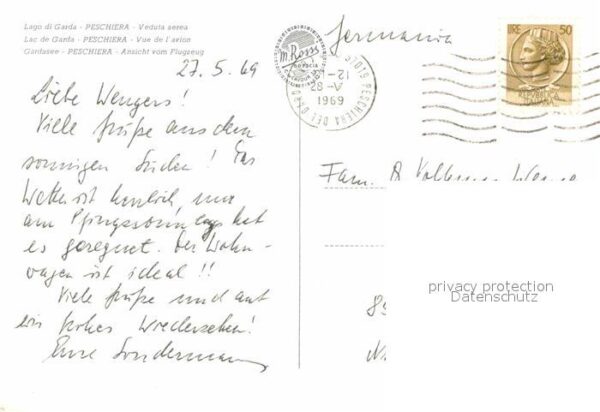 Lago di Garda - PESCHIERA - Veduta aerea
Lac de Garda - PESCHIERA - Vue de l'avion
Gardasee - PESCHIERA - Ansicht vom Flugzeug
27.5.69
Liebe Wengers!
Viele Grüße aus dem
sonnigen Süden! Das
Wetter ist herrlich, nur
am Pfingstsonntag hat
es geregnet. Der Wohn-
wagen ist ideal!!
Viele Grüße und auf
ein frohes Wiedersehen!
Eure Sondermann
Germania
m. Rossi
BRESCIA
PESCHIERA DEL
12-
28 -V-
1969
LIRE 50
REPUBBLICA
ITALIANA
Fam. A
privacy protection
Datenschutz